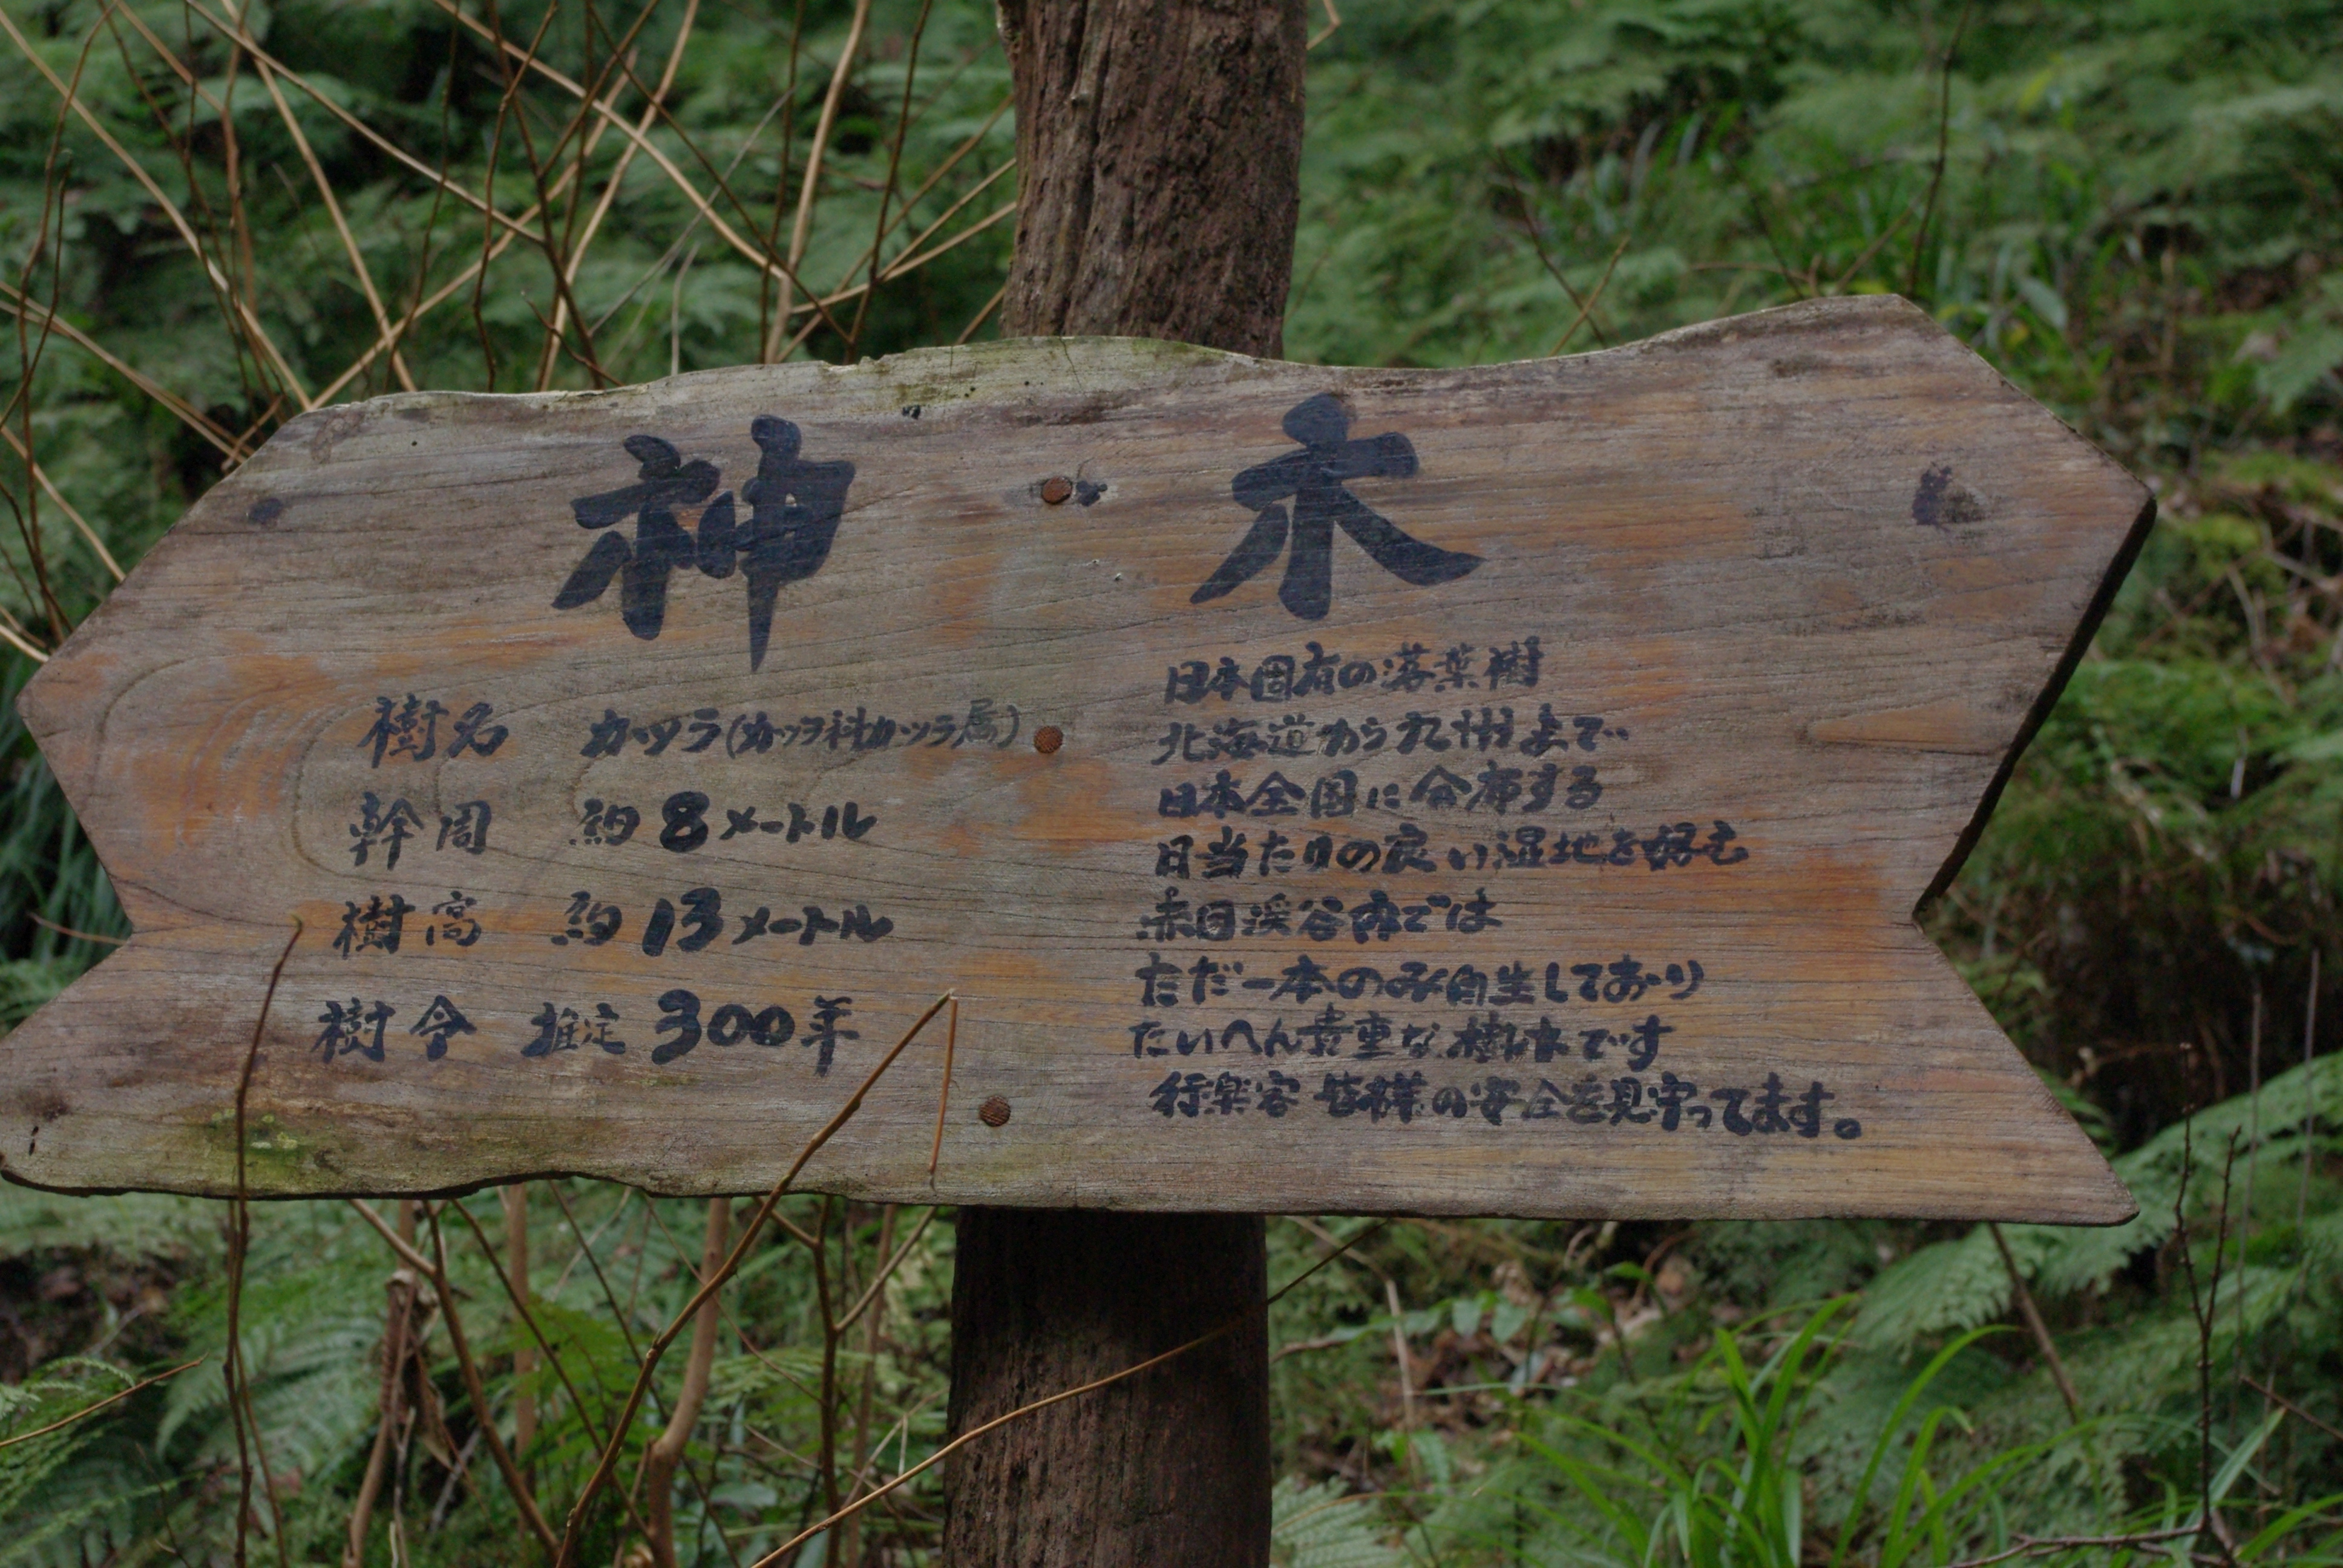 神木
樹名 カツラ(カツラ科カツラ属)
幹周 約8メートル
樹高 約13メートル
樹令 推定300年
日本固有の落葉樹
北海道から九州まで
日本全国に分布する
日当たりの良い湿地を好む
赤目渓谷内では
ただ一本のみ自生しており
たいへん貴重な樹木です
行楽客 皆様の安全を見守ってます。